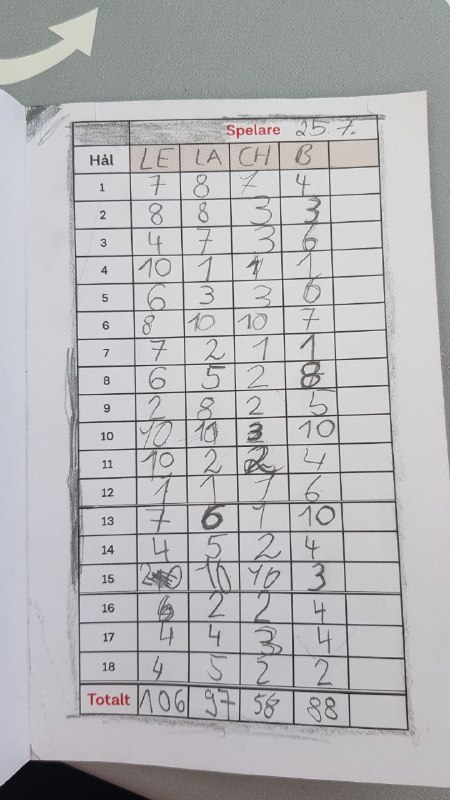 Spelare 25.7.
Hål LE LA CH B
1 7 8 7 4
2 8 8 3 3
3 4 7 3 6
4 10 1 1 1
5 6 3 3 6
6 8 10 10 7
7 7 2 1 1
8 6 5 2 8
9 2 8 2 5
10 10 10 3 10
11 10 2 2 4
12 1 1 1 6
13 7 6 1 10
14 4 5 2 4
15 2 10 10 3
16 6 2 2 4
17 4 4 3 4
18 4 5 2 2
Totalt 106 97 58 88